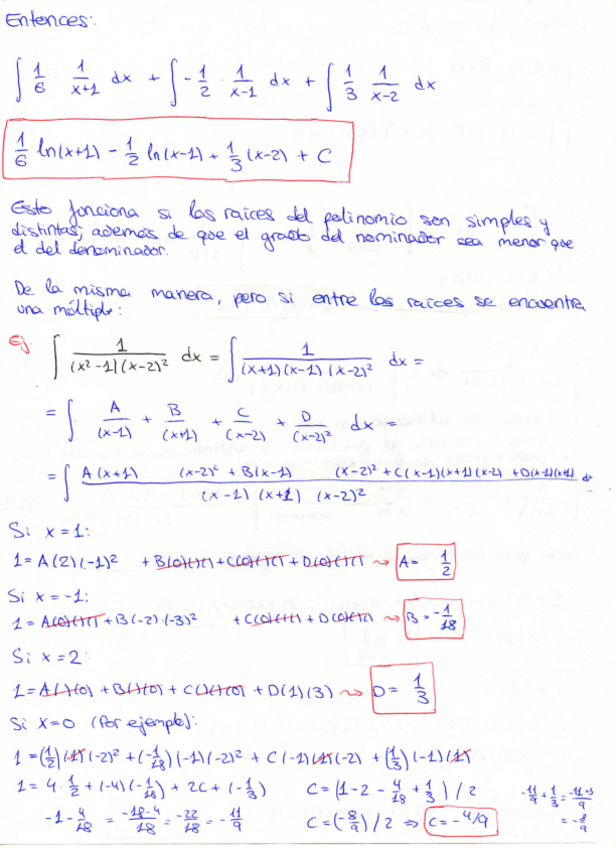 Entonces:
∫ 1/6 · 1/(x+1) dx + ∫ -1/2 · 1/(x-1) dx + ∫ 1/3 · 1/(x-2) dx
1/6 ln(x+1) - 1/2 ln(x-1) + 1/3 (x-2) + C
Esto funciona si las raíces del polinomio son simples y
distintas, además de que el grado del nominador sea menor que
el del denominador.
De la misma manera, pero si entre las raíces se encuentra
una múltiple:
Ej. ∫ 1/((x²-1)(x-2)²) dx = ∫ 1/((x+1)(x-1)(x-2)²) dx =
= ∫ A/(x-1) + B/(x+1) + C/(x-2) + D/(x-2)² dx =
= ∫ (A(x+1) (x-2)² + B(x-1) (x-2)² + C(x-1)(x+1)(x-2) + D(x-1)(x+1))/((x-1)(x+1)(x-2)²) dx
Si x=1:
1 = A(2)(-1)² + B(0)()() + C(0)()() + D(0)()() → A = 1/2
Si x=-1:
1 = A(0)()() + B(-2)(-3)² + C(0)()() + D(0)()() → B = -1/18
Si x=2:
1 = A()(0) + B()(0) + C()()(0) + D(1)(3) → D = 1/3
Si x=0 (Por ejemplo):
1 = (1/2)(1)(-2)² + (-1/18)(-1)(-2)² + C(-1)(1)(-2) + (1/3)(-1)(1)
1 = 4·1/2 + (-4)(-1/18) + 2C + (-1/3) C = (1-2-4/18+1/3)/2 -11/9 + 1/3 = (-11+3)/9
-1-4/18 = (-18-4)/18 = -22/18 = -11/9 C = (-8/9)/2 ⇒ C = -4/9 = -8/9